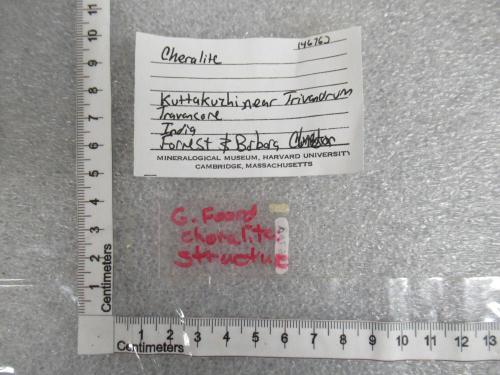 146762
Cheralite
Kuttakuzhi, near Trivandrum
Travancore
India
Forrest & Barbara
MINERALOGICAL MUSEUM, HARVARD UNIVERSITY
CAMBRIDGE, MASSACHUSETTS
G. Foord
cheralite:
structure
Centimeters
1 2 3 4 5 6 7 8 9 10 11 12
Centimeters
1 2 3 4 5 6 7 8 9 10 11 12 13